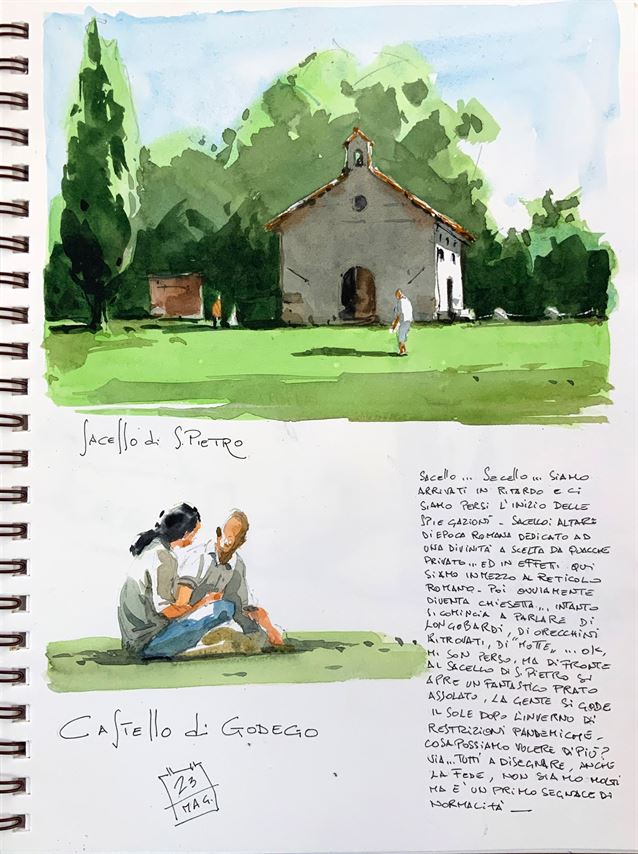 Sacello di S. PIETRO
SACELLO ... SECELLO ... SIAMO
ARRIVATI IN RITARDO E CI
SIAMO PERSI L'INIZIO DELLE
SPIEGAZIONI - SACELLO: ALTARE
DI EPOCA ROMANA DEDICATO AD
UNA DIVINITÀ A SCELTA DA QUALCHE
PRIVATO ... ED IN EFFETTI QUI
SIAMO IN MEZZO AL RETICOLO
ROMANO - POI OVVIAMENTE
DIVENTA CHIESETTA ... INTANTO
SI COMINCIA A PARLARE DI
LONGOBARDI, DI ORECCHINI
RITROVATI, DI "MOTTE" ... OK,
MI SON PERSO, MA DI FRONTE
AL SACELLO DI S. PIETRO SI
APRE UN FANTASTICO PRATO
ASSOLATO, LA GENTE SI GODE
IL SOLE DOPO L'INVERNO DI
RESTRIZIONI PANDEMICHE -
COSA POSSIAMO VOLERE DI PIÙ?
VIA ... TUTTI A DISEGNARE, ANCHE
LA FEDE, NON SIAMO MOLTI
MA È UN PRIMO SEGNALE DI
NORMALITÀ -
CASTELLO di GODEGO
23
MAG.